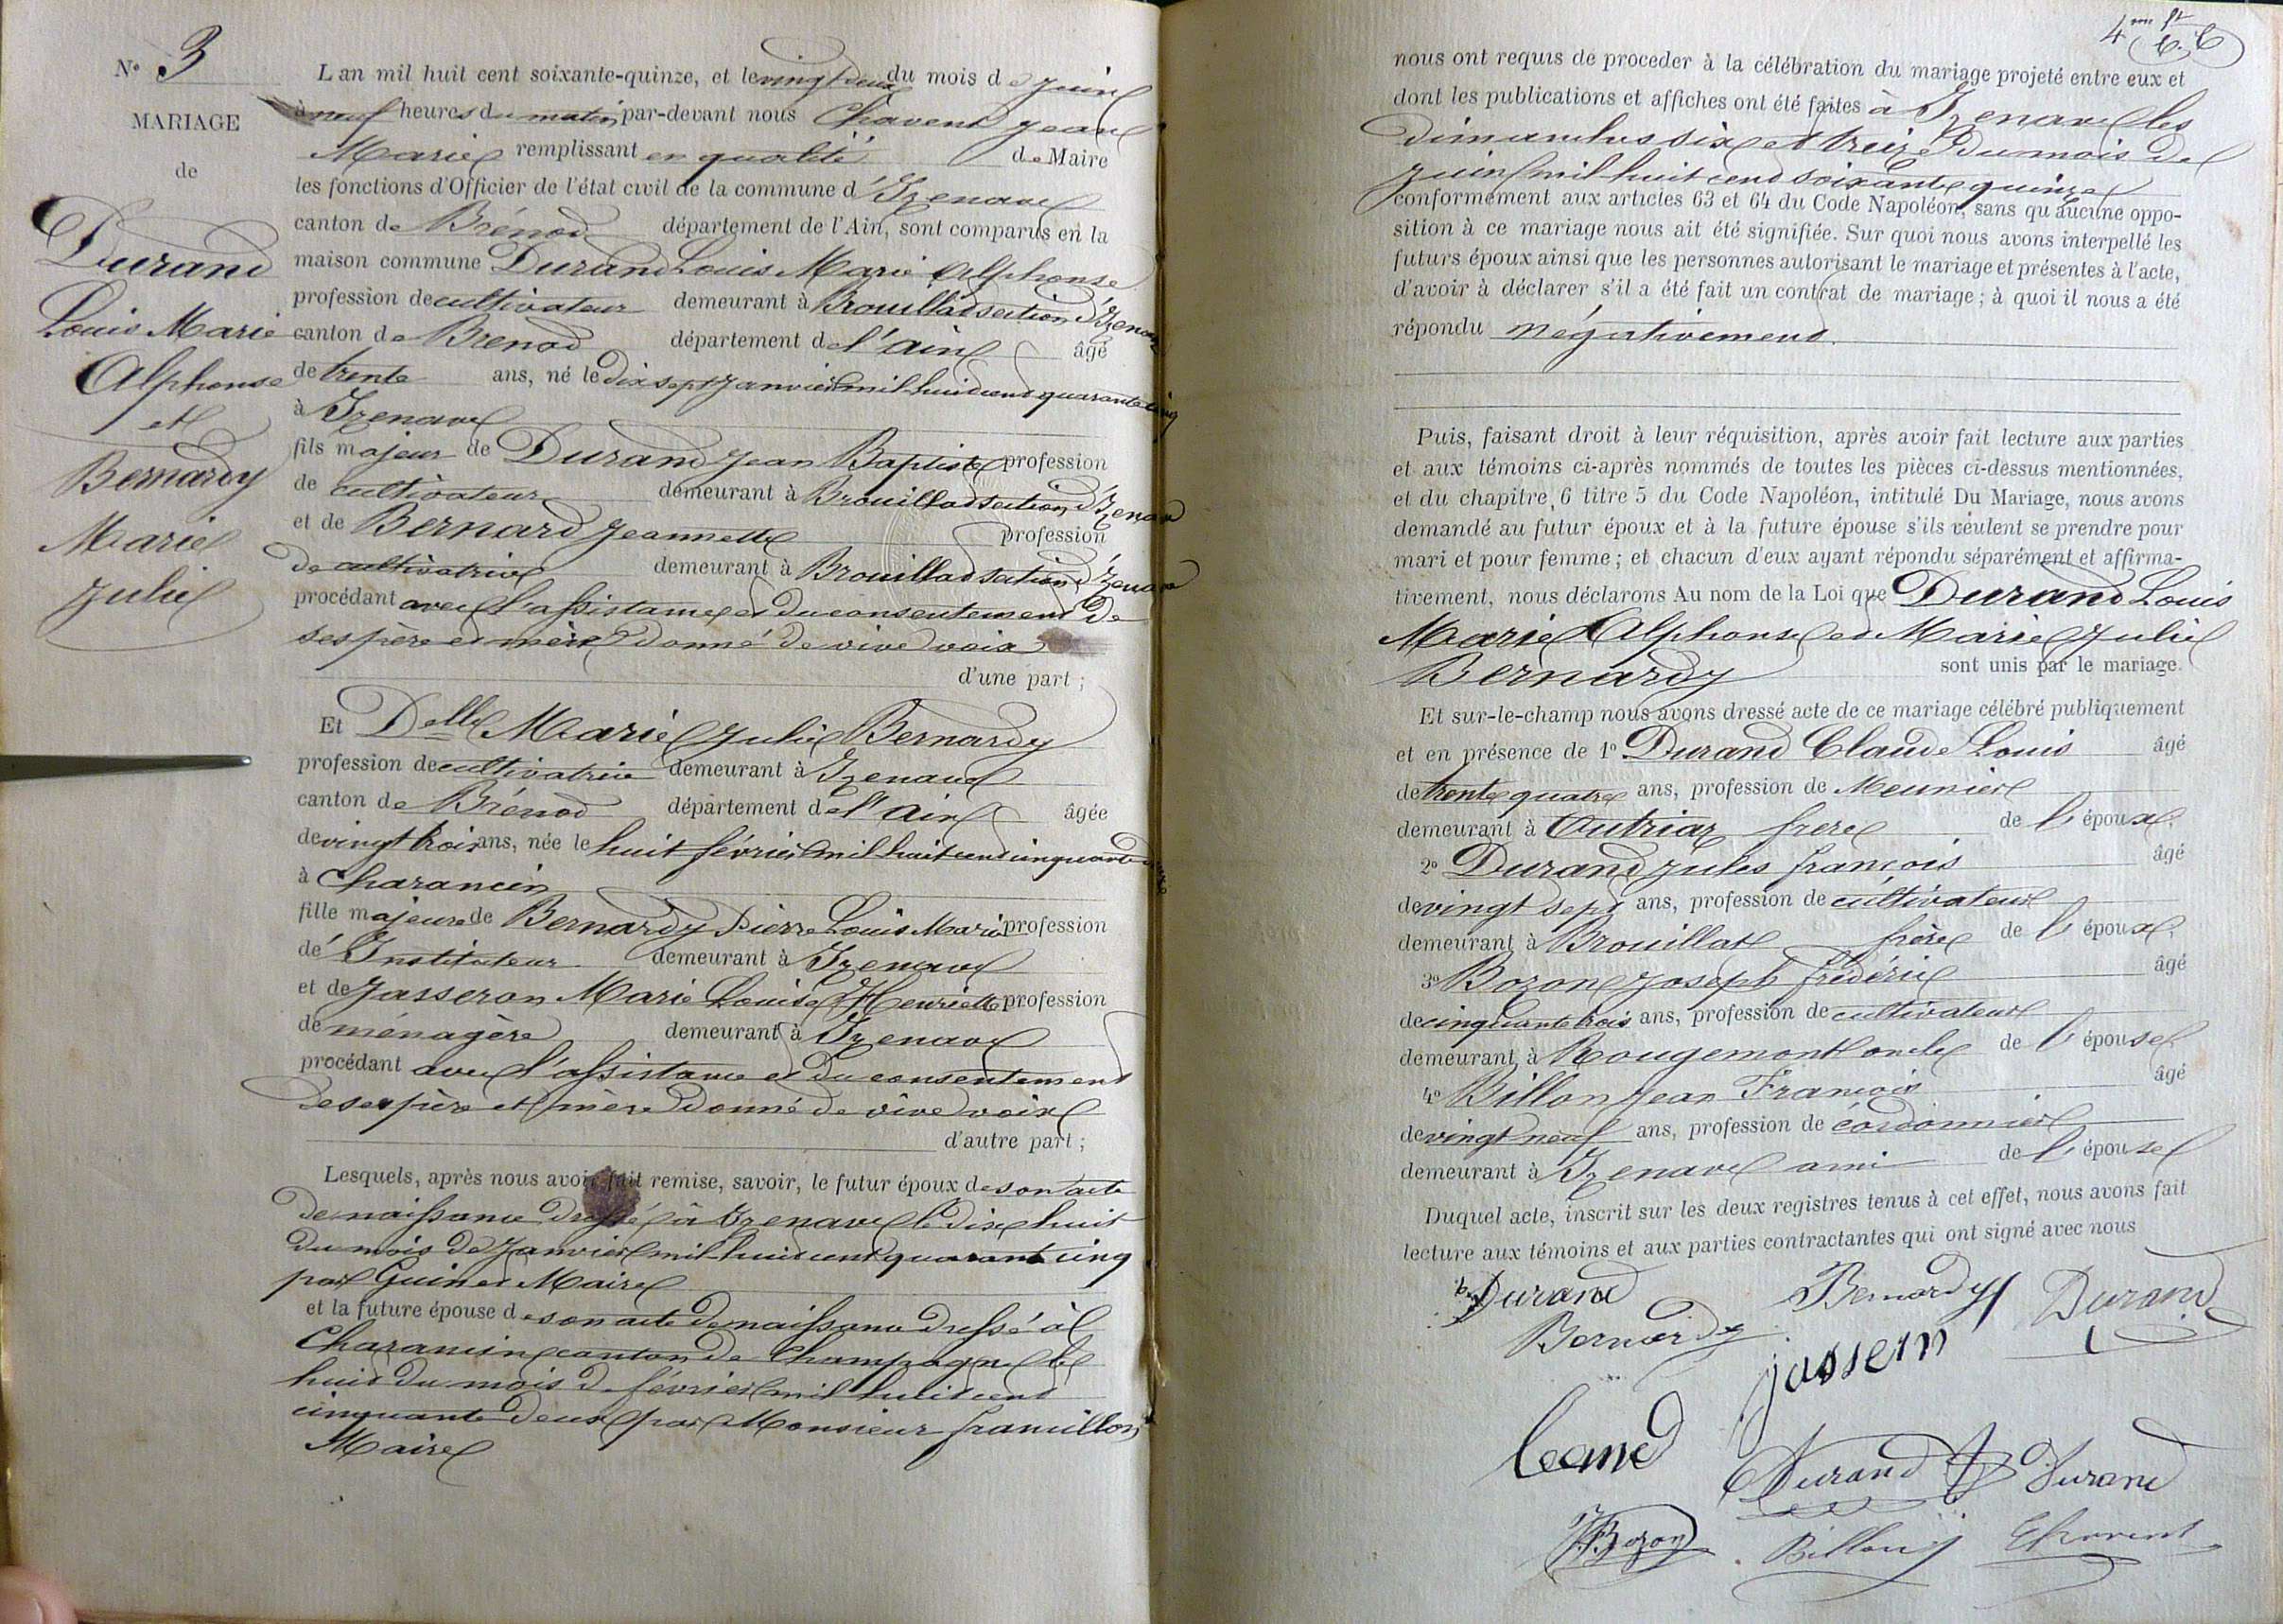 N° 3
MARIAGE
de
Durand
Louis Marie
Alphonse
et
Bernardy
Marie
Julie
L an mil huit cent soixante-quinze, et le vingt deux du mois de juin
à neuf heures du matin par-devant nous Chavent Jean
Marie remplissant en qualité de Maire
les fonctions d'Officier de l'état civil de la commune d'Izenave
canton de Brénod département de l'Ain, sont comparus en la
maison commune Durand Louis Marie Alphonse
profession de cultivateur demeurant à Brouillat section d'Izenave
canton de Brenod département de l'ain âgé
de trente ans, né le dix sept janvier mil huit cent quarante cinq
à Izenave
fils majeur de Durand Jean Baptiste profession
de cultivateur demeurant à Brouillat section d'Izenave
et de Bernard Jeannette profession
de cultivatrice demeurant à Brouillat section d'Izenave
procédant avec l'assistance et du consentement de
ses père et mère donné de vive voix
d'une part ;
Et Delle Marie Julie Bernardy
profession de cultivatrice demeurant à Izenave
canton de Brénod département de l'ain âgée
de vingt trois ans, née le huit février mil huit cent cinquante deux
à Charancin
fille majeure de Bernardy Pierre Louis Marie profession
de Instituteur demeurant à Izenave
et de Jasseron Marie Louise Henriette profession
de ménagère demeurant à Izenave
procédant avec l'assistance et du consentement
de ses père et mère donné de vive voix
d'autre part ;
Lesquels, après nous avoir fait remise, savoir, le futur époux de son acte
de naissance dressé à Izenave le dix huit
du mois de janvier mil huit cent quarante cinq
par Guinet Maire
et la future épouse de son acte de naissance dressé à
Charancin canton de Champagne le
huit du mois de février mil huit cent
cinquante deux par Monsieur francillon
Maire
nous ont requis de proceder à la célébration du mariage projeté entre eux et
dont les publications et affiches ont été faites à Izenave les
dimanches six et treize du mois de
juin mil huit cent soixante quinze
conformément aux articles 63 et 64 du Code Napoléon, sans qu aucune oppo-
sition à ce mariage nous ait été signifiée. Sur quoi nous avons interpellé les
futurs époux ainsi que les personnes autorisant le mariage et présentes à l'acte,
d'avoir à déclarer s'il a été fait un contrat de mariage ; à quoi il nous a été
répondu négativement.
Puis, faisant droit à leur réquisition, après avoir fait lecture aux parties
et aux témoins ci-après nommés de toutes les pièces ci-dessus mentionnées,
et du chapitre 6 titre 5 du Code Napoléon, intitulé Du Mariage, nous avons
demandé au futur époux et à la future épouse s'ils veulent se prendre pour
mari et pour femme ; et chacun d'eux ayant répondu séparément et affirma-
tivement, nous déclarons Au nom de la Loi que Durand Louis
Marie Alphonse et Marie Julie
Bernardy sont unis par le mariage.
Et sur-le-champ nous avons dressé acte de ce mariage célébré publiquement
et en présence de 1° Durand Claude Louis âgé
de trente quatre ans, profession de Meunier
demeurant à Outriaz frere de l'époux.
2° Durand Jules françois âgé
de vingt sept ans, profession de cultivateur
demeurant à Brouillat frère de l'époux.
3° Bozon Joseph frédéric âgé
de cinquante trois ans, profession de cultivateur
demeurant à Rougemont oncle de l'épouse
4° Billon Jean François âgé
de vingt neuf ans, profession de cordonnier
demeurant à Izenave ami de l'épouse
Duquel acte, inscrit sur les deux registres tenus à cet effet, nous avons fait
lecture aux témoins et aux parties contractantes qui ont signé avec nous
Durand Bernardy Durand
Bernardy
jassern
Durand Durand
Bozon Billon Chavent